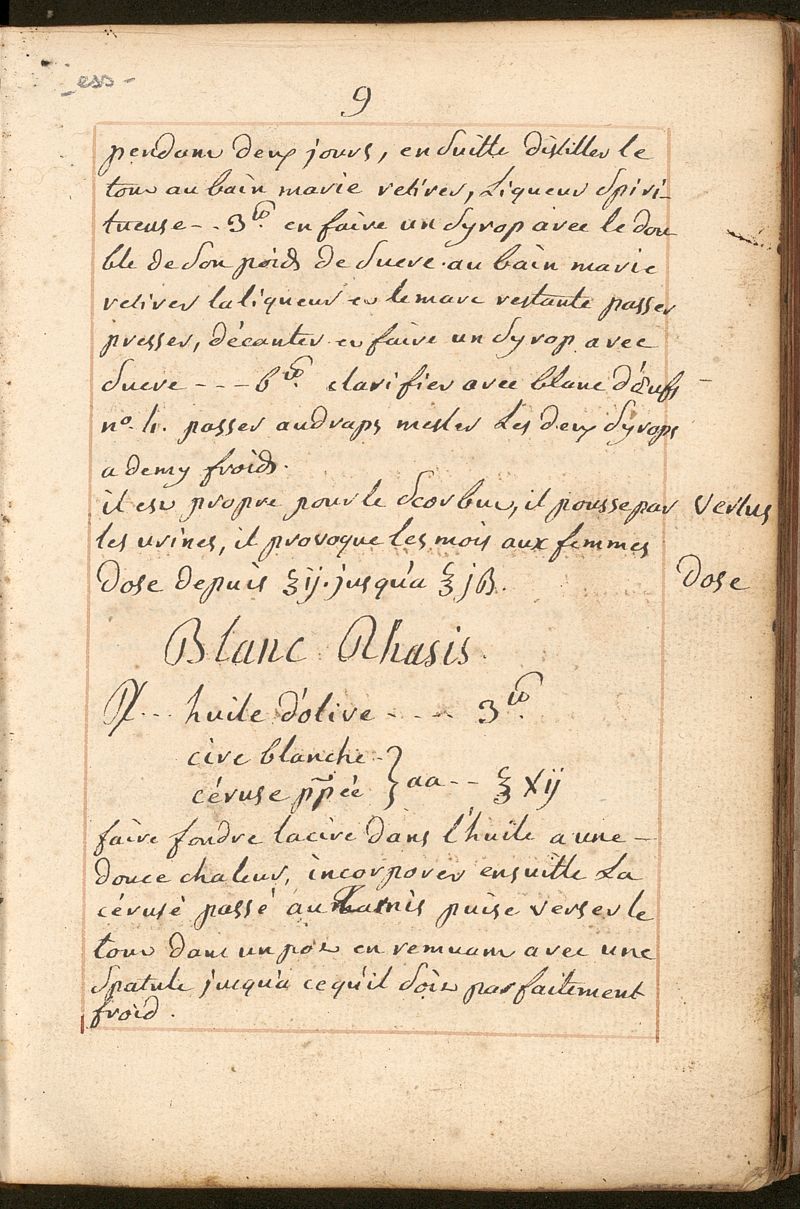 ess
9
pendant deux jours, en Suitte distiller le
tout au bain marie retirer, Liqueur Spiri-
tueuse -- 3 lb. en faire un Syrop avec le dou
ble de Son poids de Sucre au bain marie
retirer la liqueur et le marc restante passer
presser, décanter et faire un Syrop avec
Sucre --- 6 lb. clarifier avec blanc d'œufs -
n.º 4. passer au draps mesler Les deux Syrops
a demy froids.
il est propre pour le Scorbut, il pousse par
les urines, il provoque les mois aux femmes
Dose depuis ℥ij. jusqu'a ℥jß.
Vertus
Dose
Blanc Rhasis.
℞... huile d'olive ---- 3 lb.
cire blanche
céruse pp̃ée } aa -- ℥ Xij
faire fondre la cire dans l'huile a une -
douce chaleur, incorporer ensuitte La
céruse passé au tamis puise verser le
tout dans un pot en remuant avec une
Spatule jusqu'a ce qu'il Soit parfaitement
froid.